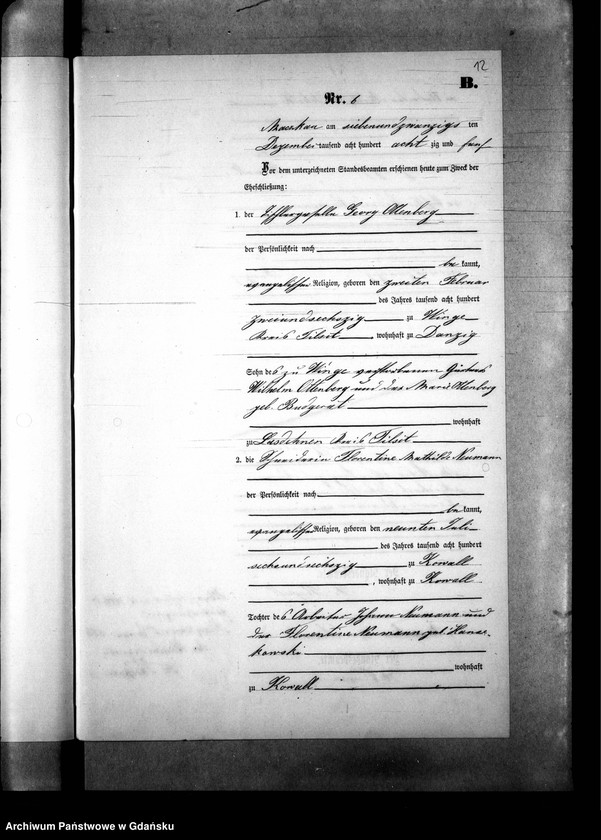 12
B.
Nr. 6
Maczkau am siebenundzwanzigs ten
Dezember tausend acht hundert acht zig und fünf
Vor dem unterzeichneten Standesbeamten erschienen heute zum Zweck der
Eheschließung:
1. der Georg Ottenberg
der Persönlichkeit nach
be kannt,
evangelischer Religion, geboren den zweiten Februar
des Jahres tausend acht hundert
zweiundsechszig zu Winge
Kreis Tilsit, wohnhaft zu Danzig
Sohn des zu Winge verstorbenen
Wilhelm Ottenberg und der Marie Ottenberg
geb.
wohnhaft
zu Lasdehnen Kreis Tilsit
2. die Schneiderin Florentine Mathilde Neumann
der Persönlichkeit nach
be kannt,
evangelischer Religion, geboren den neunten Juli
des Jahres tausend acht hundert
sechsundsechszig zu Kowall
, wohnhaft zu Kowall
Tochter des Arbeiter Johann Neumann und
der Florentine Neumann geb.
kowski
wohnhaft
zu Kowall
Archiwum Państwowe w Gdańsku